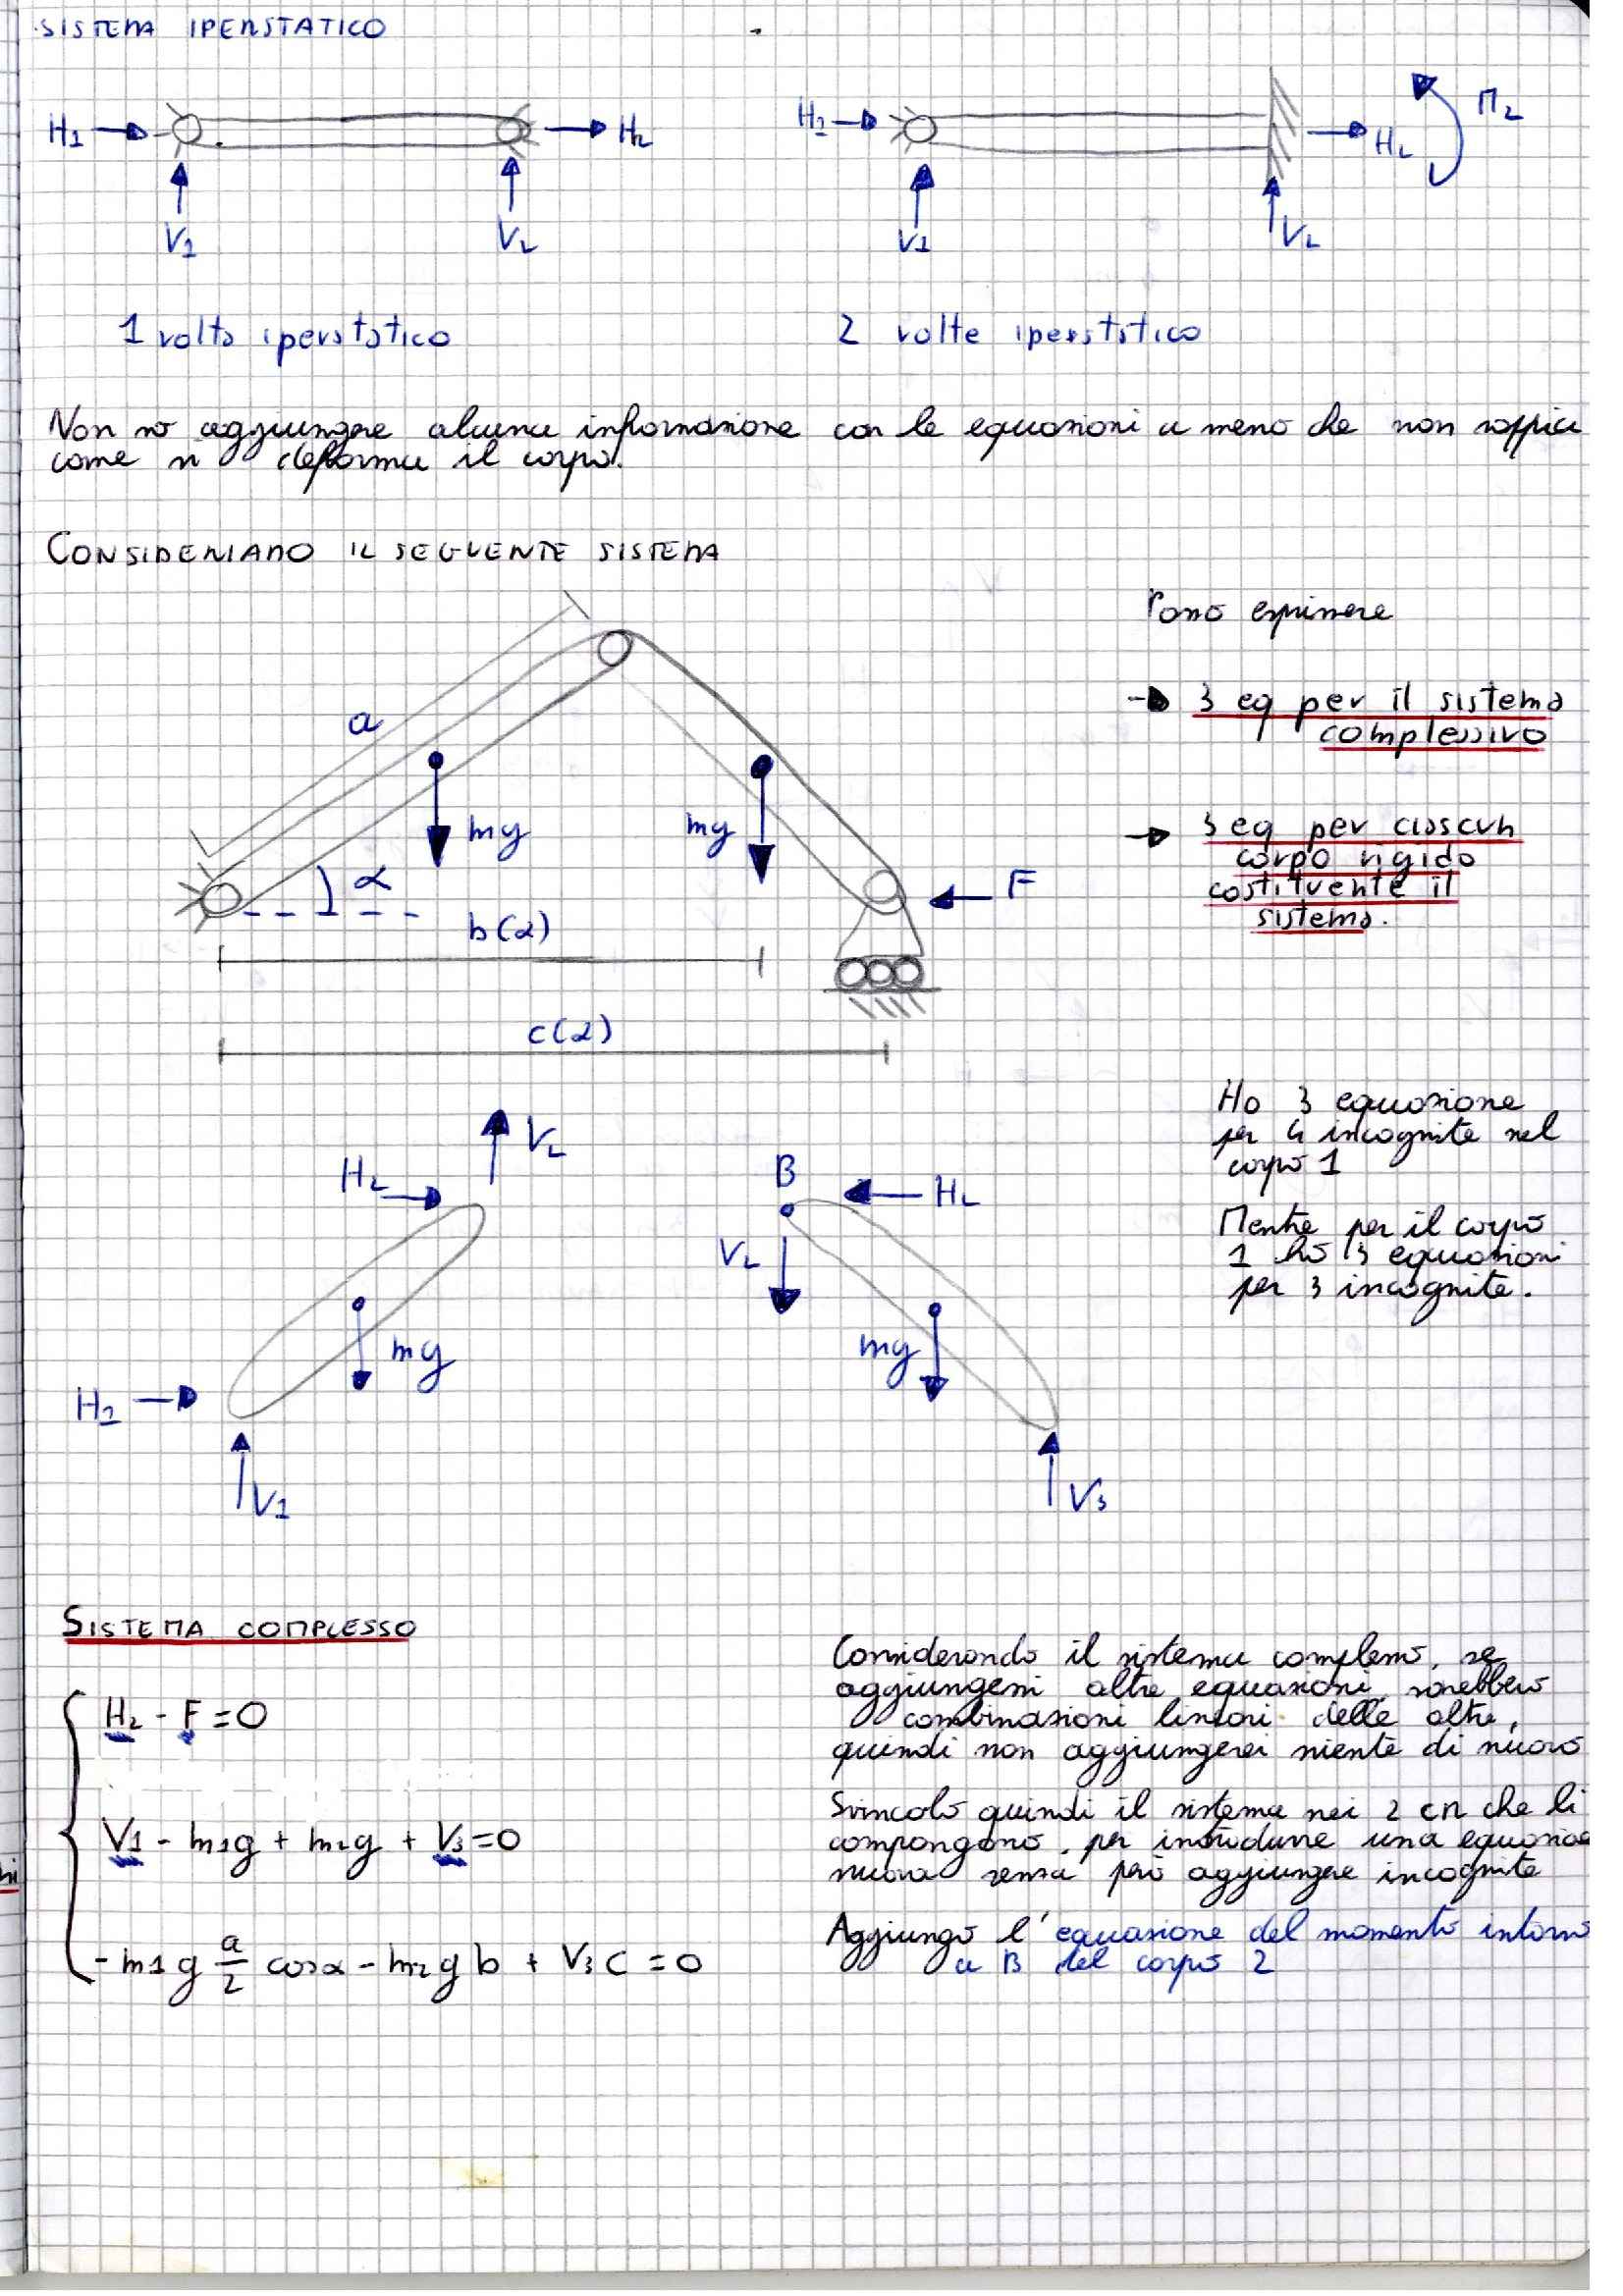 SISTEMA IPERSTATICO
H1 H2 H1 H2 M2
V1 V2 V1 V2
1 volta iperstatico 2 volte iperstatico
Non so aggiungere alcuna informazione con le equazioni a meno che non sappia
come si deforma il corpo.
CONSIDERIAMO IL SEGUENTE SISTEMA
Posso esprimere
3 eq per il sistema
complessivo
3 eq per ciascun
corpo rigido
costituente il
sistema.
a
mg mg
α F
b(α)
c(α)
Ho 3 equazione
per 4 incognite nel
corpo 1
Mentre per il corpo
1 ho 3 equazioni
per 3 incognite.
V2
H2 B H2
V2
mg mg
H1
V1 V3
SISTEMA COMPLESSO
H1 - F = 0
V1 - m1g + m2g + V3 = 0
- m1 g a/2 cosα - m2 g b + V3 c = 0
Considerando il sistema complesso, se
aggiungessi altre equazioni sarebbero
combinazioni lineari delle altre,
quindi non aggiungerei niente di nuovo
Svincolo quindi il sistema nei 2 CR che li
compongono, per introdurre una equazione
nuova senza però aggiungere incognite
Aggiungo l'equazione del momento intorno
a B del corpo 2